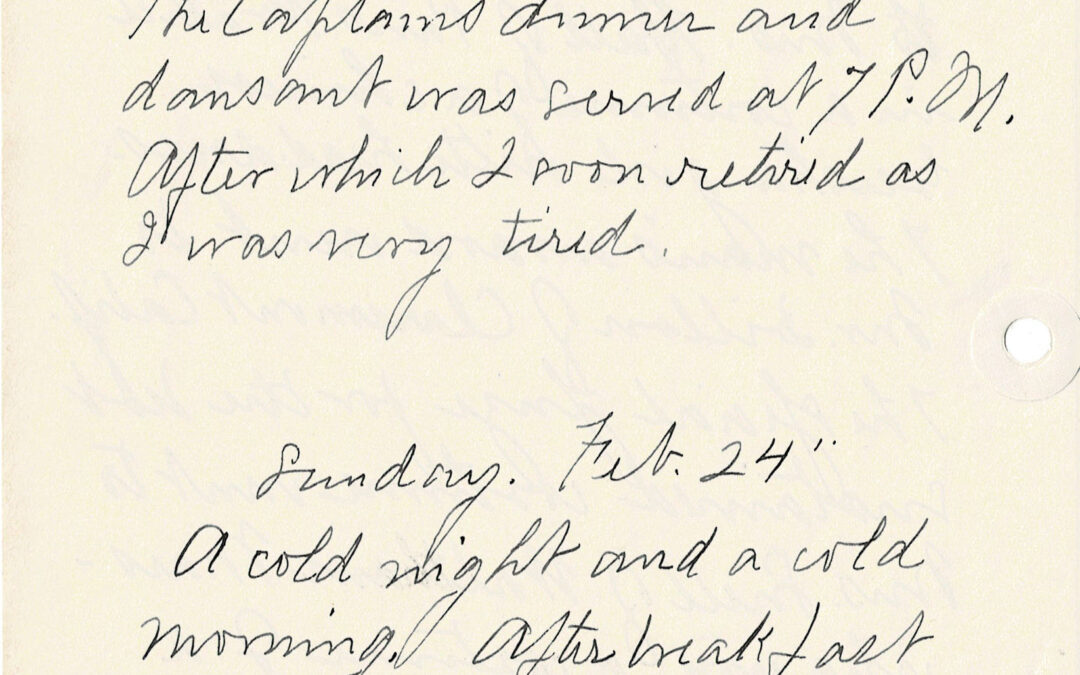 The Captains dinner and
dansant was served at 7 P.M.
After which I soon retired as
I was very tired.
Sunday. Feb. 24"
A cold night and a cold
morning. After breakfast